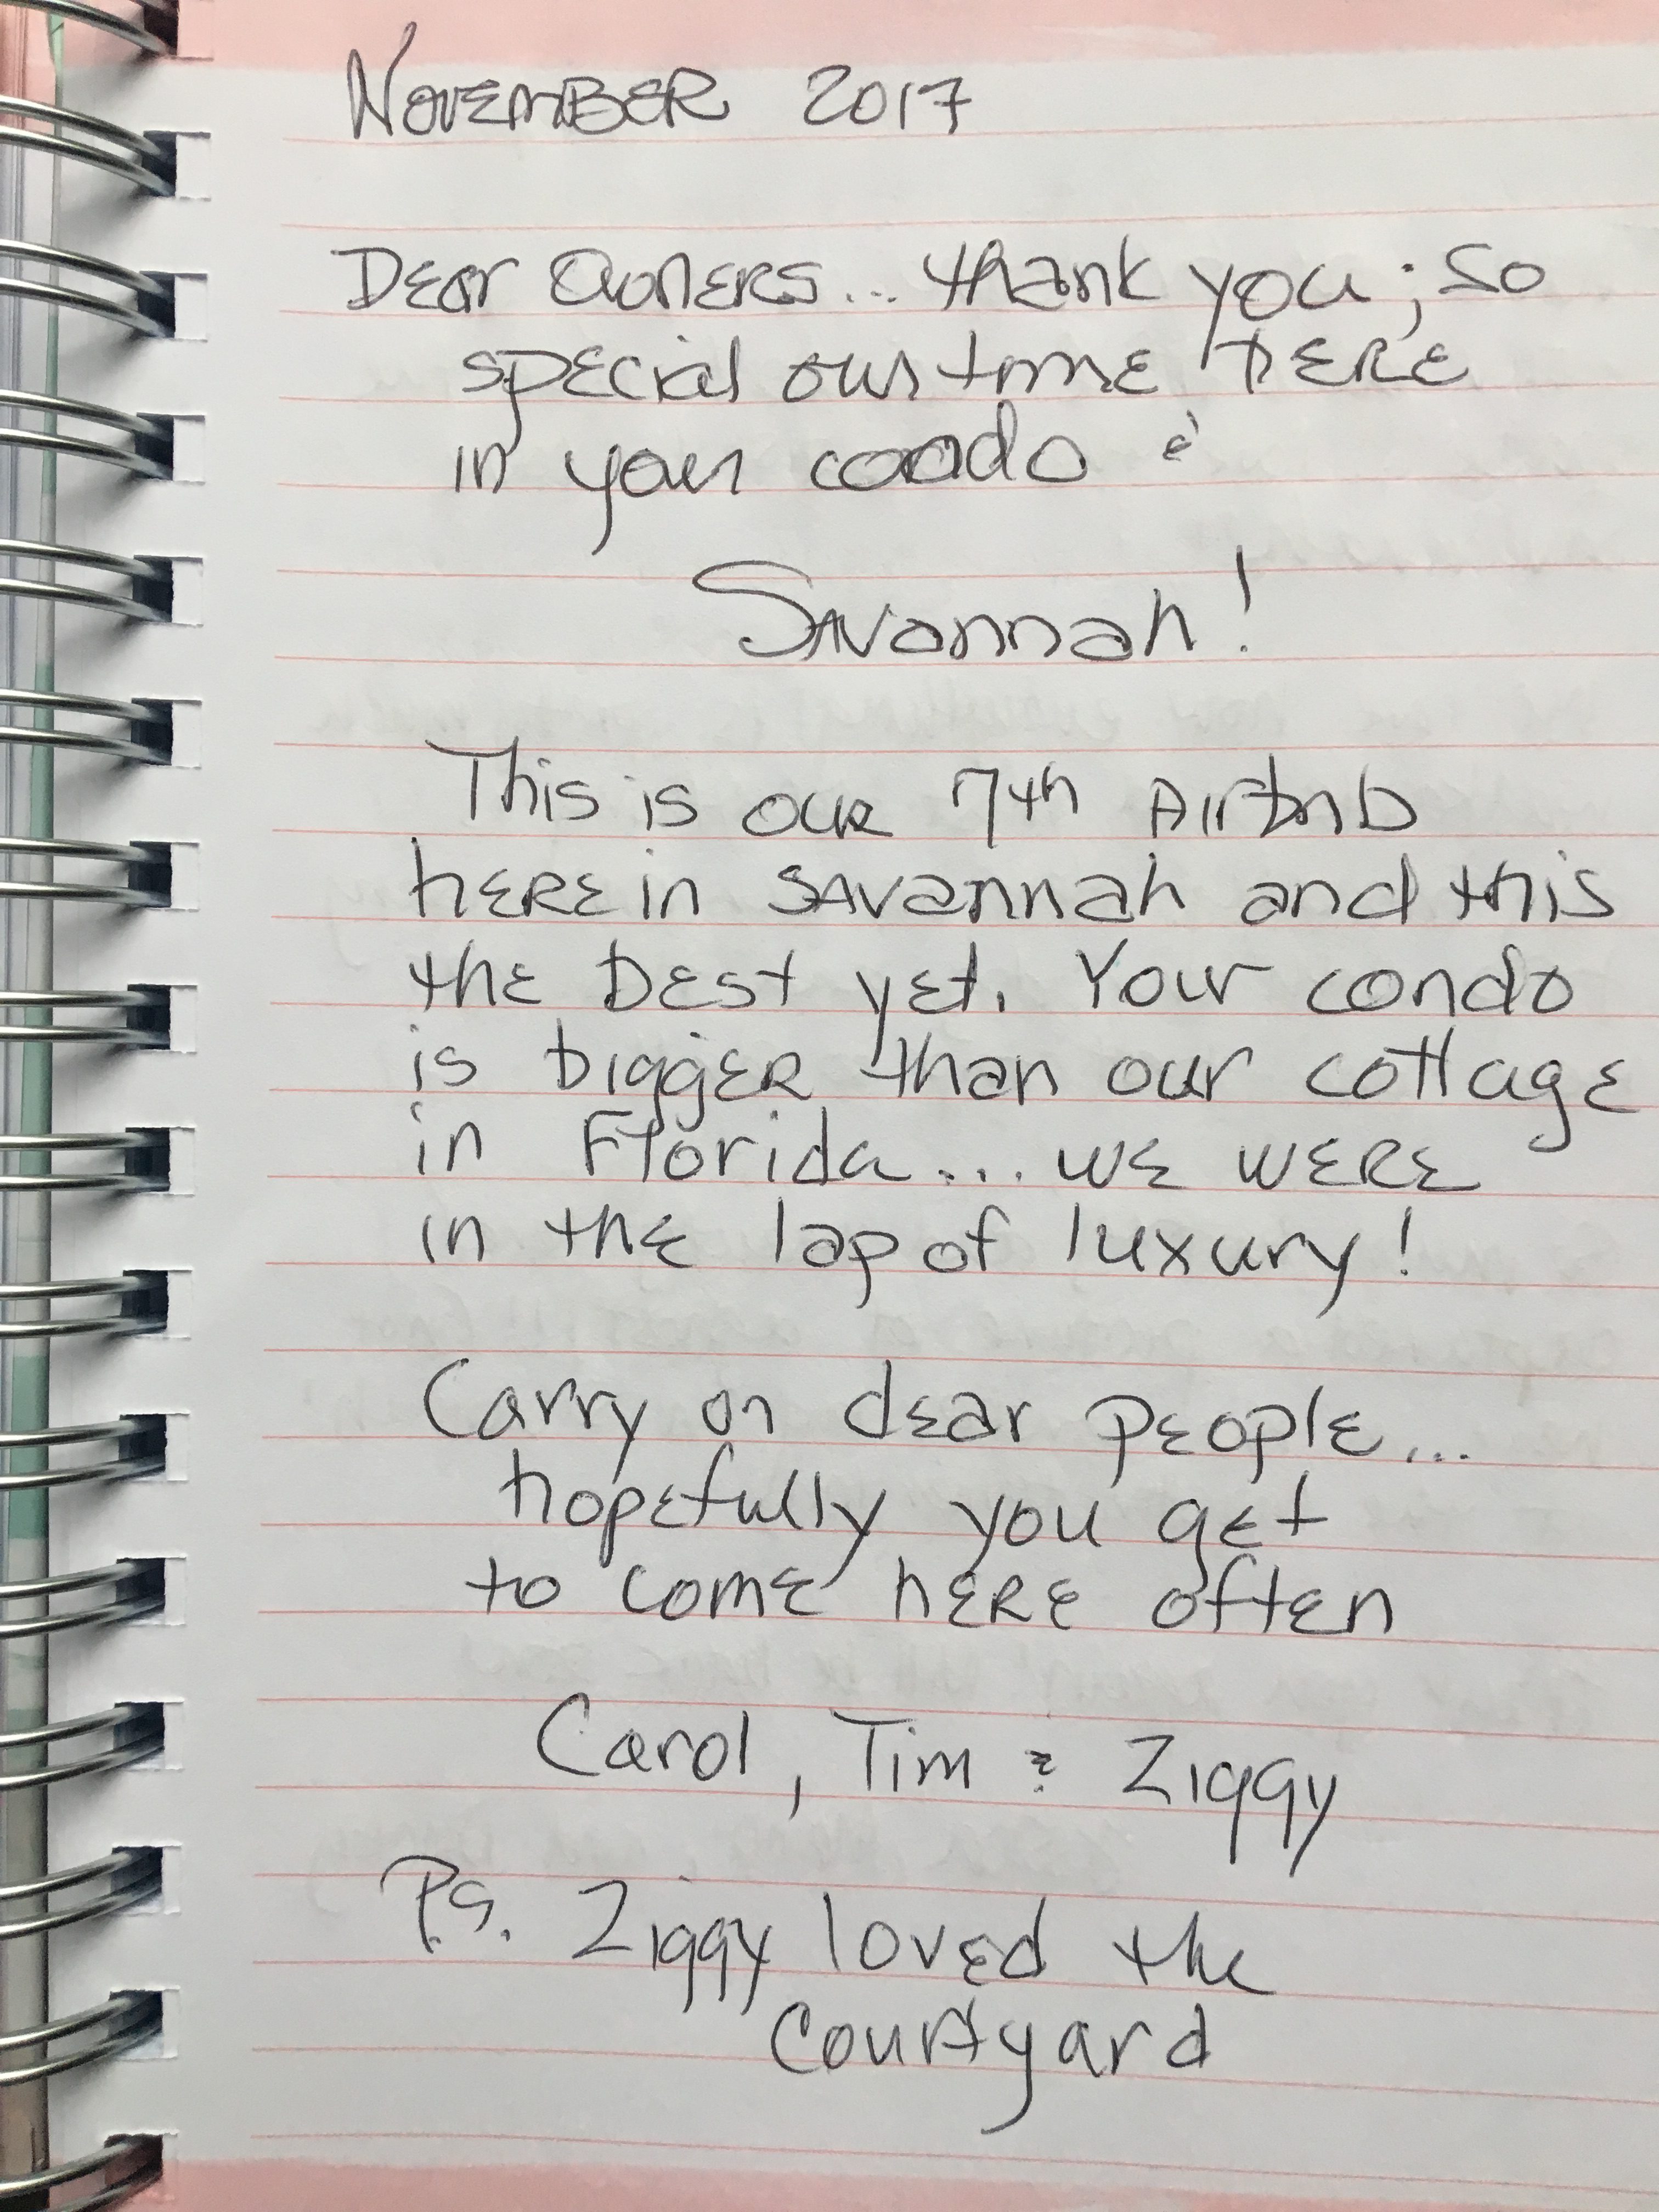 November 2017
Dear Owners... thank you; so
special our time here
in your condo &
Savannah!
This is our 7th Airbnb
here in Savannah and this
the best yet. Your condo
is bigger than our cottage
in Florida... we were
in the lap of luxury!
Carry on dear people...
hopefully you get
to come here often
Carol, Tim & Ziggy
P.S. Ziggy loved the
Courtyard